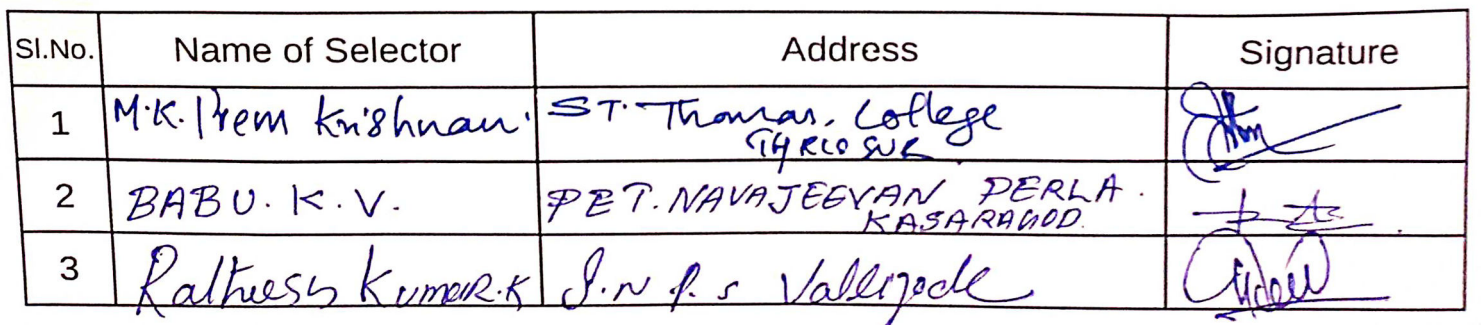 Sl.No. Name of Selector Address Signature
1 M.K. Prem Krishnan. ST. Thomas. College
THRISSUR
2 BABU. K. V. PET. NAVAJEEVAN PERLA.
KASARAGOD.
3 Ratheesh Kumar.K S.N.P.S